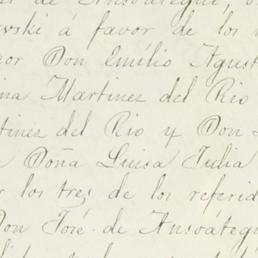 er de Ansoátegui,
wski á favor de los
or Don Emilio Agust
na Martinez del Rio
tinez del Rio y Don
Doña Luisa Julia
r los tres de los referid
Don José de Ansoátegu